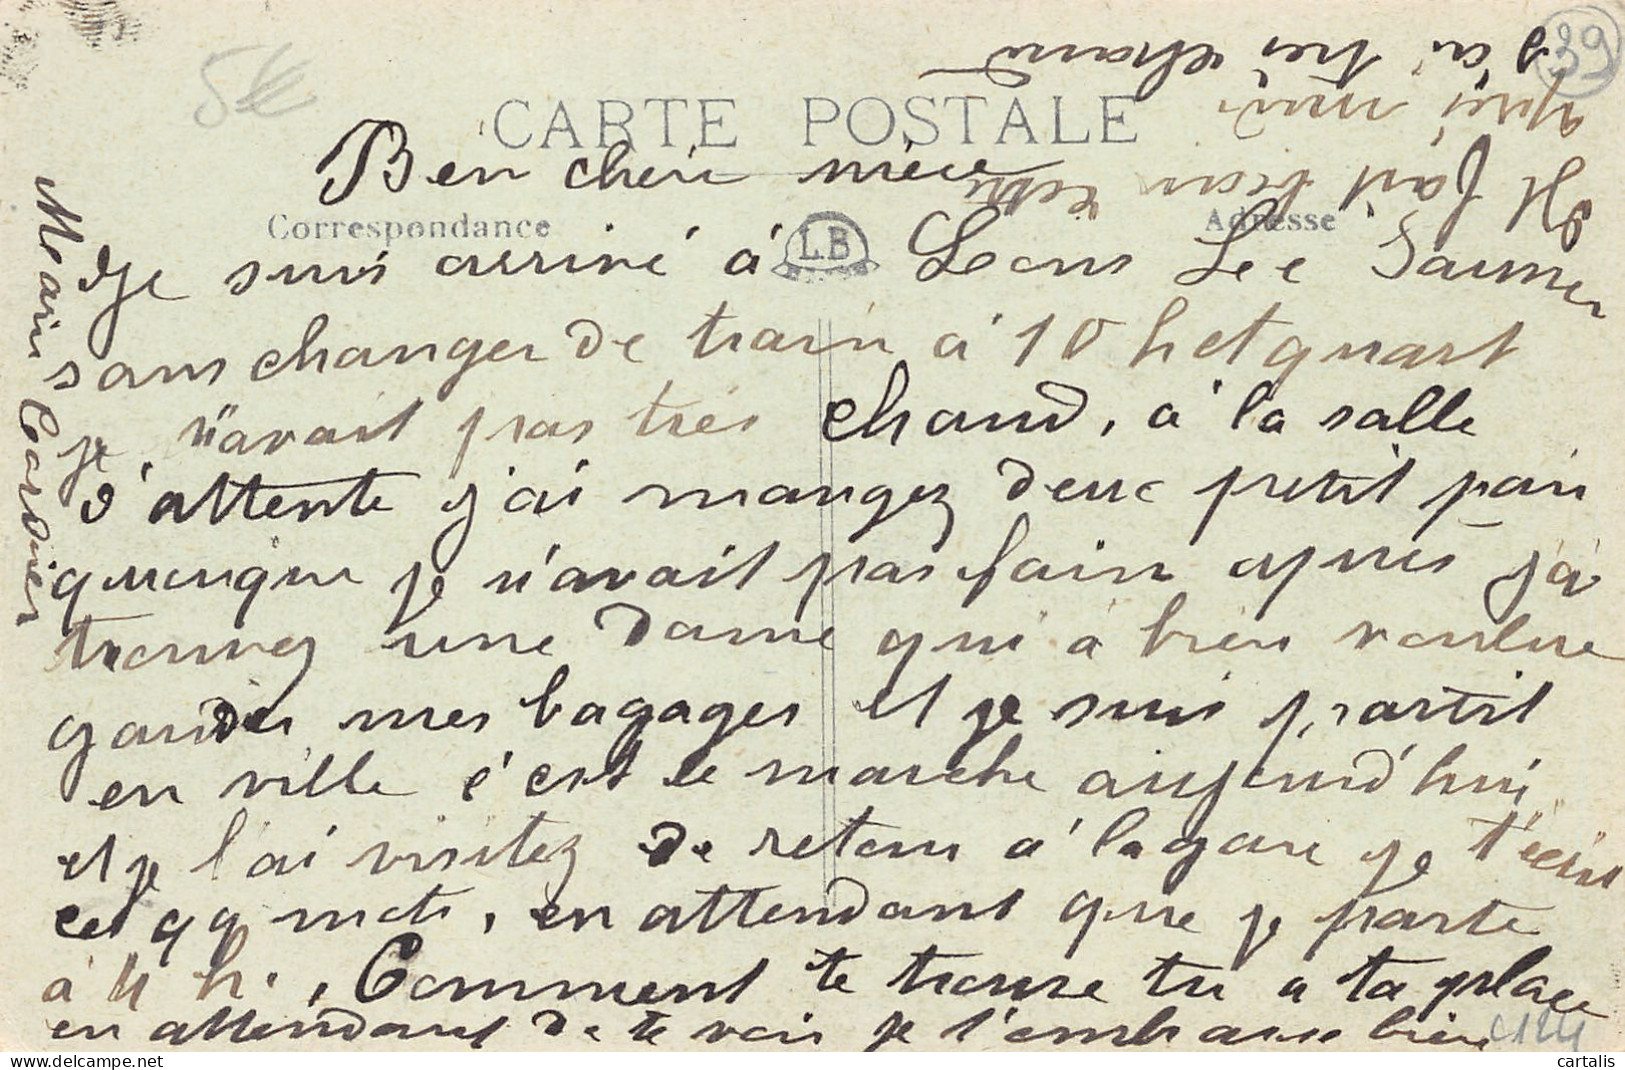 5€
39
CARTE POSTALE
Correspondance
LB
Adresse
Bon cheri mère
Je suis arrivé à Lons Lee Saunier
sans changer de train à 10 h et quart
je n'avait pas très chaud, à la salle
d'attente j'ai mangez deux petit pain
quoique je n'avait pas faim après j'ai
trouvez une dame qui à bien voulue
garder mes bagages et je suis partit
en ville c'est le marche aujourd'hui
et je l'ai visitez de retour à la gare je t'ecris
ces qq mots, en attendant que je parte
à 4 h. Comment te trouve tu a ta place
en attendant de te voir je t'embrasse bien
Il fait beau cette
après midi
j'ai très chaud
Cordier
cartalis